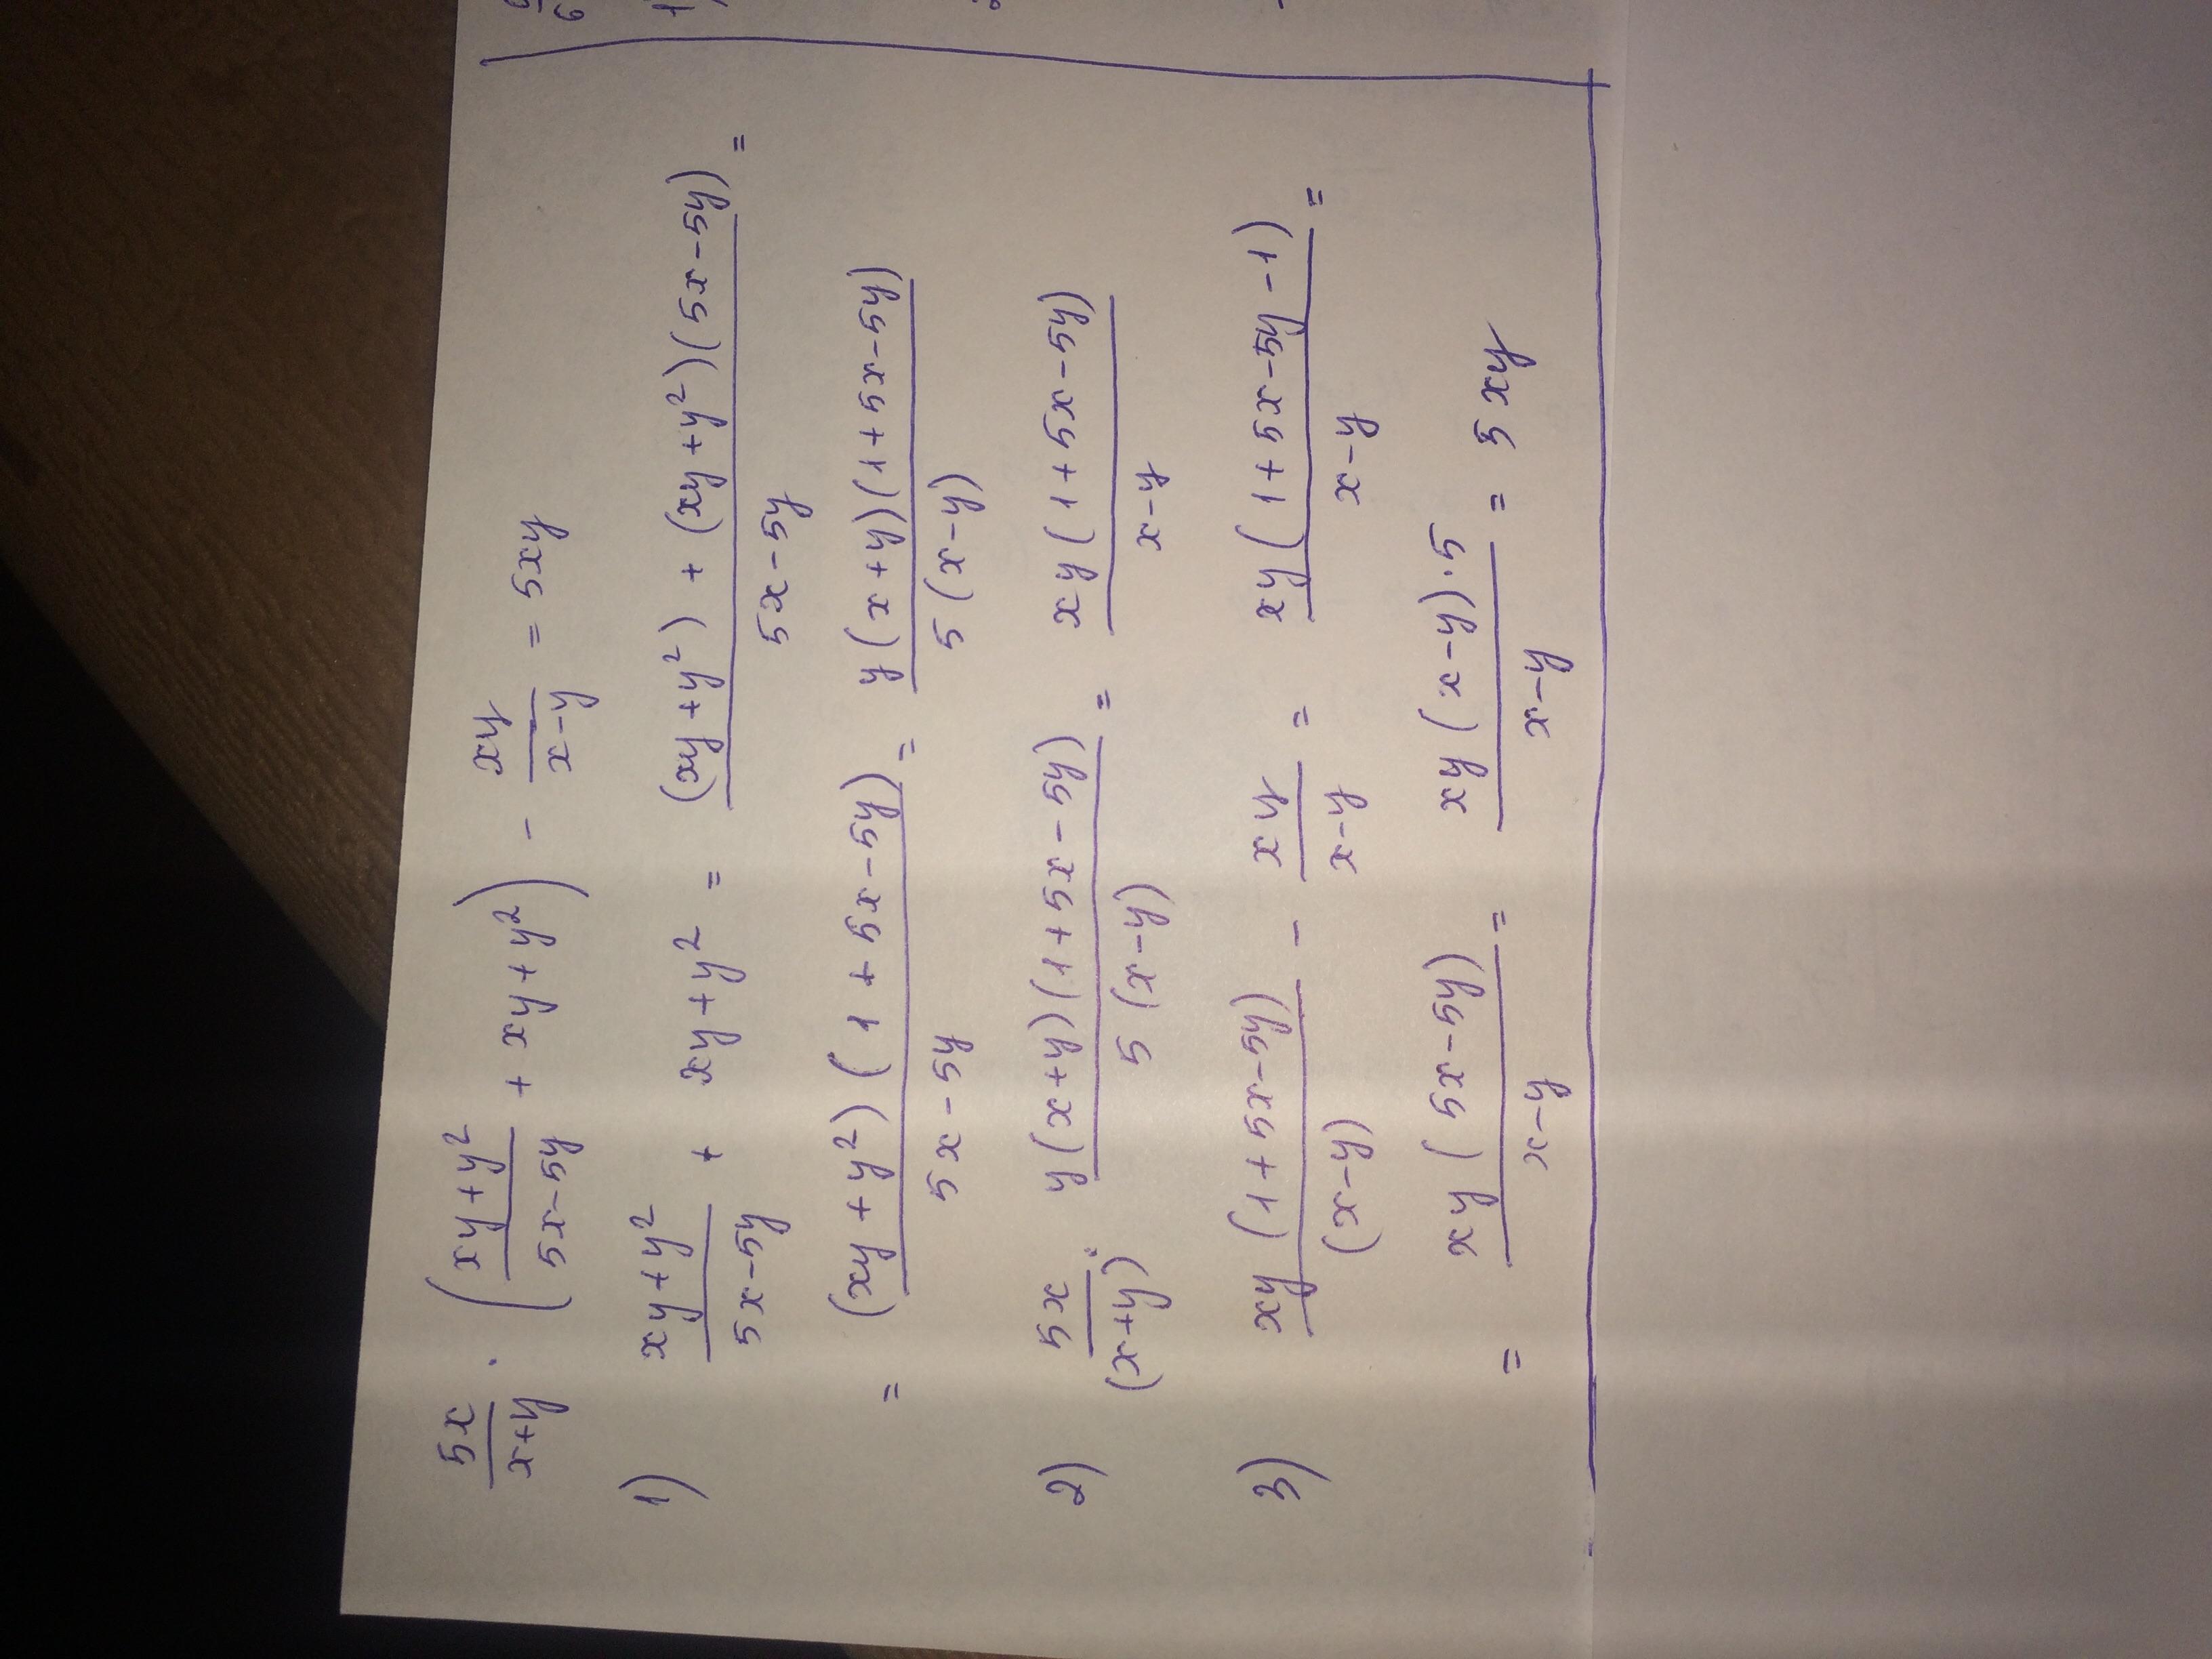 5x/(x+y) · ((xy+y²)/(5x-5y) + xy+y²) - xy/(x-y) = 5xy
1) (xy+y²)/(5x-5y) + xy+y² = ((xy+y²)+(xy+y²)(5x-5y))/(5x-5y) =
= ((xy+y²)(1+5x-5y))/(5x-5y) = (y(x+y)(1+5x-5y))/(5(x-y))
2) 5x/(x+y) · (y(x+y)(1+5x-5y))/(5(x-y)) = (xy(1+5x-5y))/(x-y)
3) (xy(1+5x-5y))/(x-y) - xy/(x-y) = (xy(1+5x-5y-1))/(x-y) =
= (xy(5x-5y))/(x-y) = (xy(x-y)·5)/(x-y) = 5xy